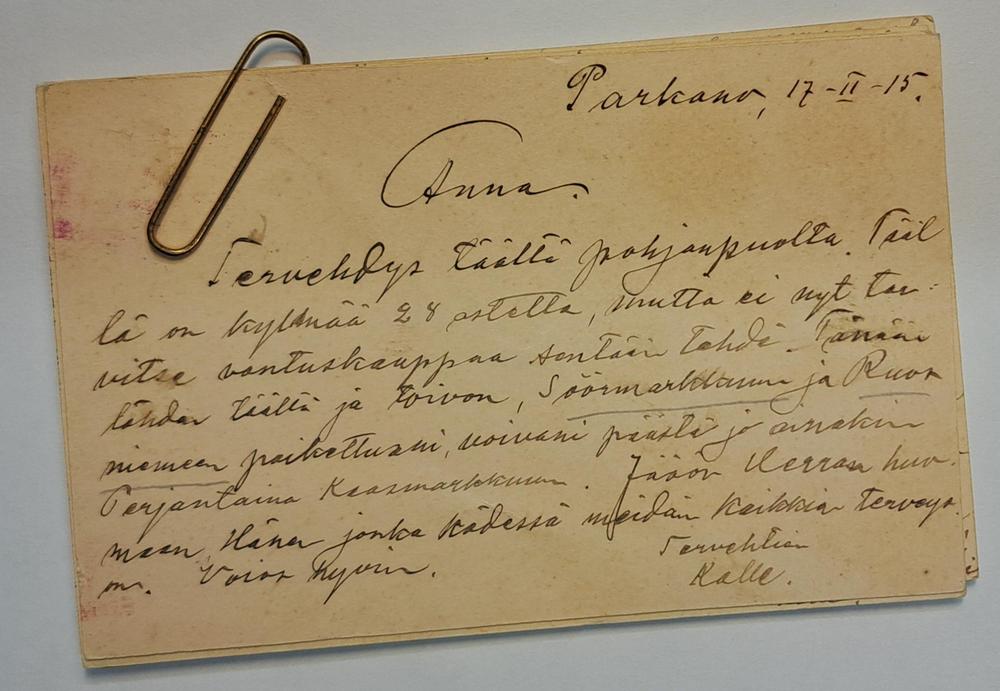 Parkano, 17-II-15.
Anna.
Tervehdys täältä pohjanpuolta. Tääl
lä on kylmää 28 astetta, mutta ei nyt tar-
vitse vantuskauppaa sentään tehdä. Tänään
lähden täältä ja toivon, Söörmarkkuun ja Ruos
niemeen poikettuani, voivani päästä jo ainakin
Perjantaina Kaasmarkkuun. Jääös Herran huo-
maan, Hänen jonka kädessä meidän kaikkien terveys
on. Voios hyvin.
Tervehtien
Kalle.